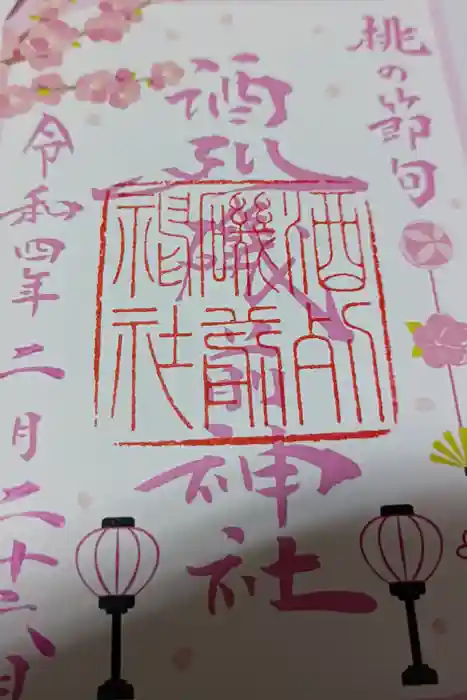 桃の節句
酒列磯前神社
酒列
磯前
神社
令和四年二月二十六日